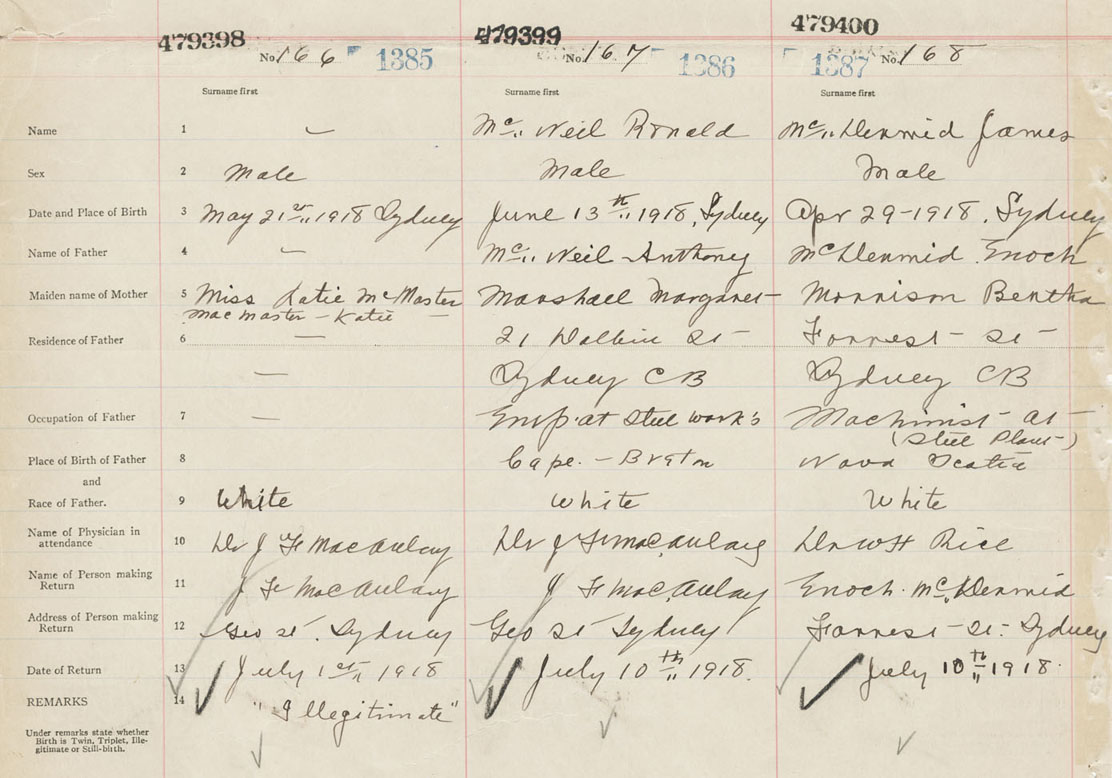 479398 479399 479400
No. 166 1385 No. 167 1386 1387 No. 168
Surname first Surname first Surname first
Name 1 — Mc„ Neil Ronald Mc„ Dermid James
Sex 2 Male Male Male
Date and Place of Birth 3 May 21st„ 1918 Sydney June 13th„ 1918, Sydney Apr 29-1918. Sydney
Name of Father 4 — Mc„ Neil Anthony McDermid Enoch
Maiden name of Mother 5 Miss Katie McMaster Marshall Margaret Morrison Bertha
MacMaster - Katie —
Residence of Father 6 — 21 St Forrest St
— Sydney CB Sydney CB
Occupation of Father 7 — Emp. at Steel work's Machinist at
(Steel Plant)
Place of Birth of Father 8 Cape. - Breton Nova Scotia
and
Race of Father. 9 White White White
Name of Physician in
attendance 10 Dr J F MacAulay Dr J F MacAulay Dr W H Rice
Name of Person making
Return 11 J F MacAulay J F MacAulay Enoch. McDermid
Address of Person making
Return 12 Geo St. Sydney Geo St Sydney Forrest St. Sydney
Date of Return 13 July 1st„ 1918 July 10th„ 1918. July 10th„ 1918.
REMARKS 14 "Illegitimate"
Under remarks state whether
Birth is Twin, Triplet, Ille-
gitimate or Still-birth.